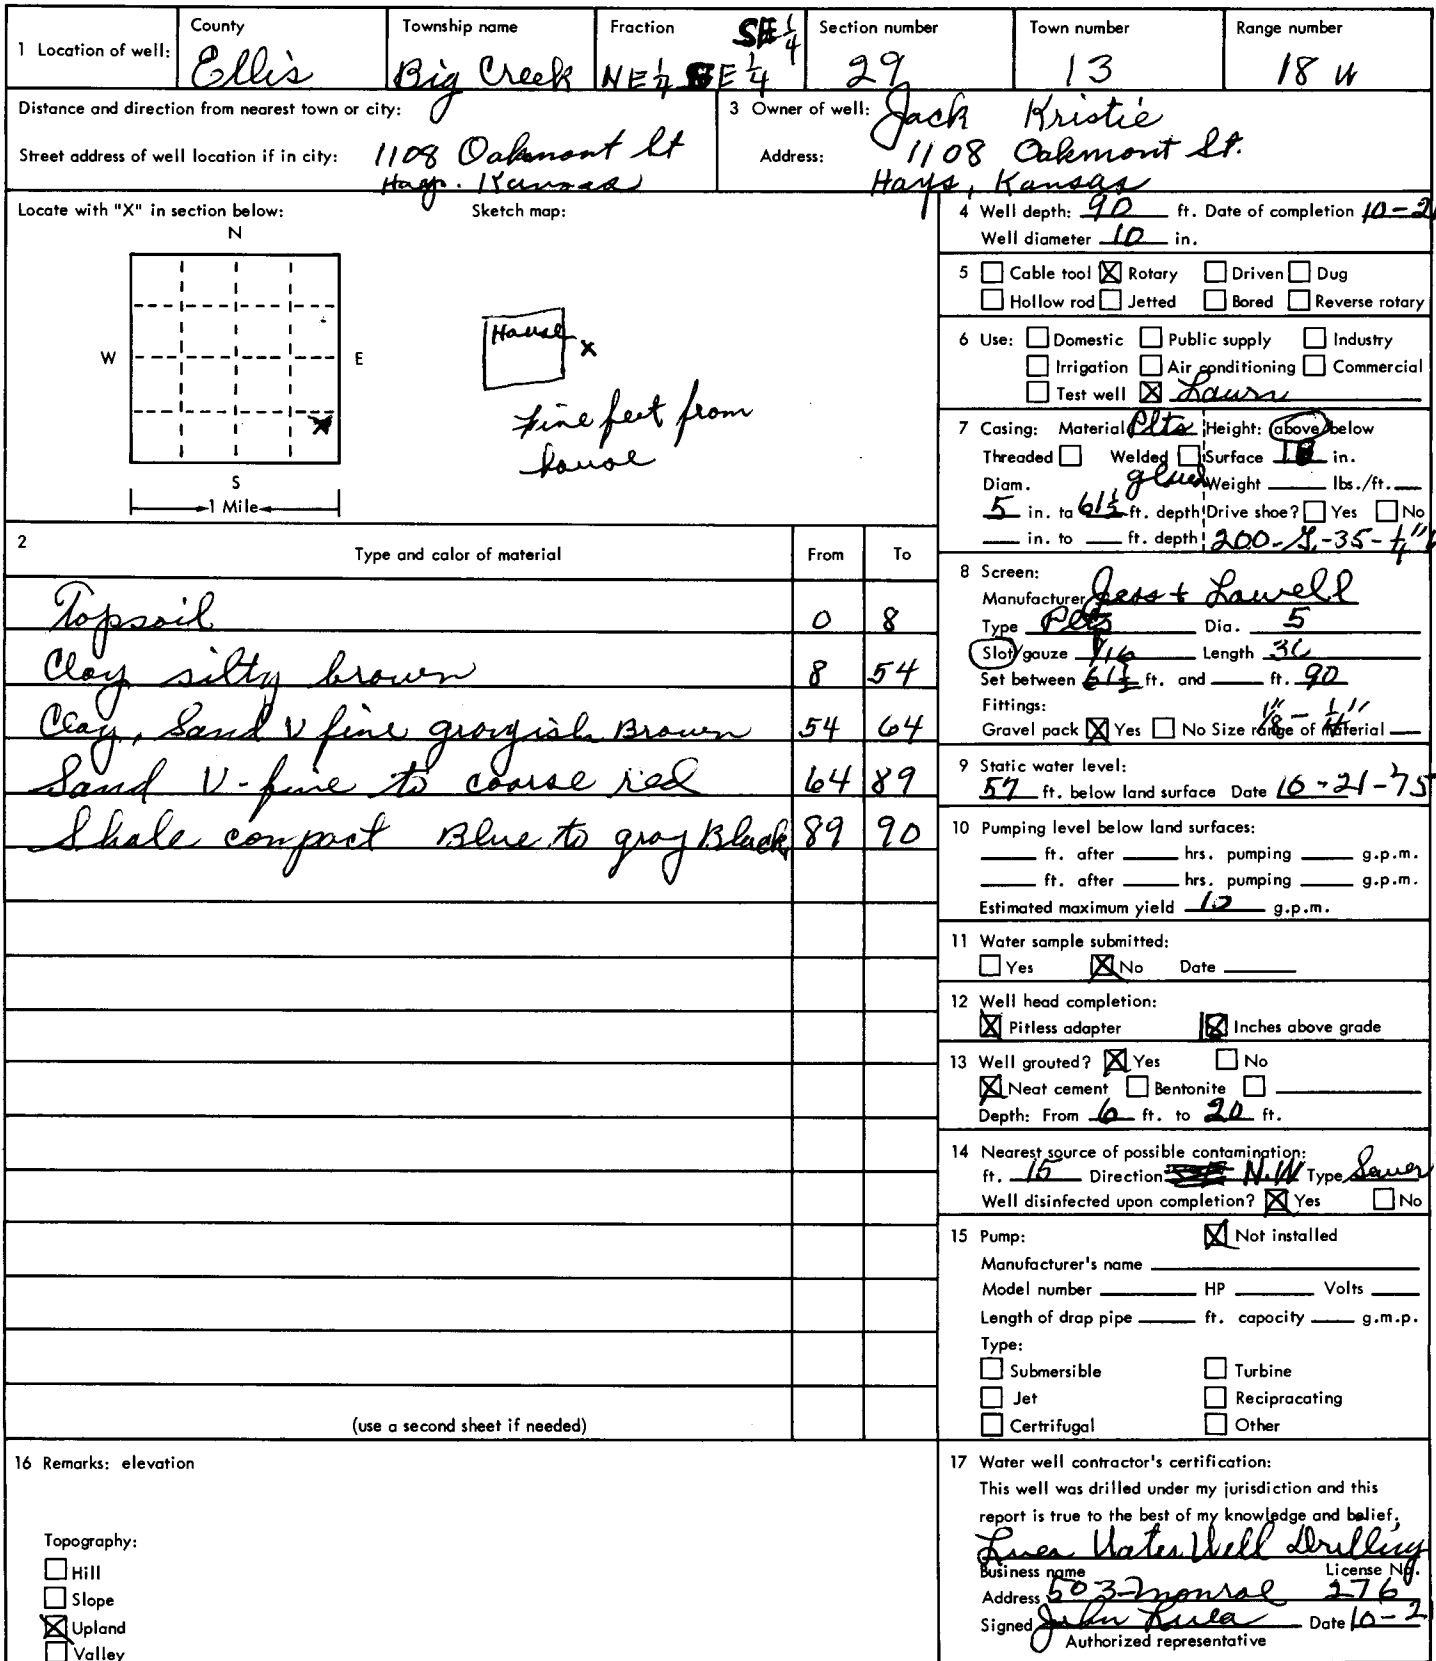 1 Location of well: County Township name Fraction SE 1/4 Section number Town number Range number
Ellis Big Creek NE 1/4 SE 1/4 29 13 18 W
Distance and direction from nearest town or city: 3 Owner of well: Jack Kristie
Street address of well location if in city: 1108 Oakmont St Address: 1108 Oakmont St.
Hays. Kansas Hays, Kansas
Locate with "X" in section below: Sketch map:
N
W E
S
1 Mile
House x
Fine feet from
house
4 Well depth: 90 ft. Date of completion 10-2
Well diameter 10 in.
5 Cable tool X Rotary Driven Dug
Hollow rod Jetted Bored Reverse rotary
6 Use: Domestic Public supply Industry
Irrigation Air conditioning Commercial
Test well X Lawn
7 Casing: Material Plts Height: above/below
Threaded Welded Surface in.
Diam. glued Weight lbs./ft.
5 in. to 61½ ft. depth Drive shoe? Yes No
in. to ft. depth 200-
8 Screen:
Manufacturer Jess + Lowell
Type Plts Dia. 5
Slot/gauze 1/16 Length 30
Set between 61½ ft. and ft. 90
Fittings:
Gravel pack X Yes No Size range of material 1/8" - 1/4"
9 Static water level:
57 ft. below land surface Date 10-21-75
10 Pumping level below land surfaces:
ft. after hrs. pumping g.p.m.
ft. after hrs. pumping g.p.m.
Estimated maximum yield 10 g.p.m.
11 Water sample submitted:
Yes X No Date
12 Well head completion:
X Pitless adapter 18 Inches above grade
13 Well grouted? X Yes No
X Neat cement Bentonite
Depth: From 6 ft. to 20 ft.
14 Nearest source of possible contamination:
ft. 15 Direction N.W Type Sewer
Well disinfected upon completion? X Yes No
15 Pump: X Not installed
Manufacturer's name
Model number HP Volts
Length of drap pipe ft. capacity g.m.p.
Type:
Submersible Turbine
Jet Recipracating
Certrifugal Other
2 Type and color of material From To
Topsoil 0 8
Clay silty brown 8 54
Clay, Sand V fine grayish Brown 54 64
Sand V-fine to coarse red 64 89
Shale compact Blue to gray Black 89 90
(use a second sheet if needed)
16 Remarks: elevation
Topography:
Hill
Slope
X Upland
Valley
17 Water well contractor's certification:
This well was drilled under my jurisdiction and this
report is true to the best of my knowledge and belief.
Water Well Drilling
Business name License No.
Address 503 Monroe 276
Signed John Date 10-2
Authorized representative